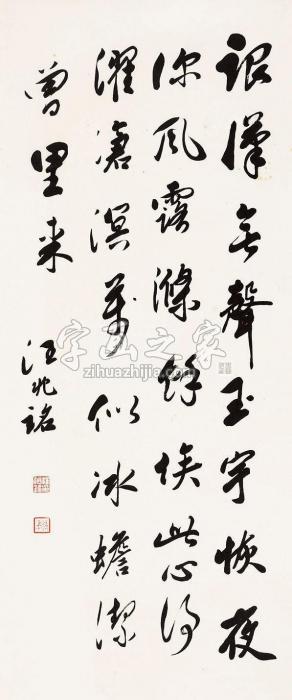 銀漢無聲玉宇恢夜
深風露滌餘埃此心得
濯滄溟萬似冰蟾潔
曾里来
汪兆銘
字画之家
zihuazhijia.com